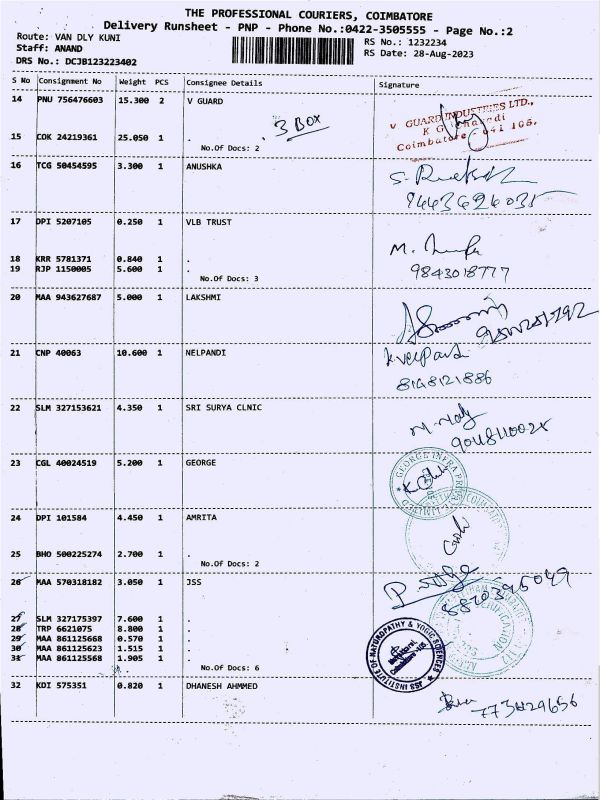 THE PROFESSIONAL COURIERS, COIMBATORE
Delivery Runsheet - PNP - Phone No.:0422-3505555 - Page No.:2
Route: VAN DLY KUNI
Staff: ANAND
DRS No.: DCJB123223402
RS No.: 1232234
RS Date: 28-Aug-2023
S No Consignment No Weight PCS Consignee Details Signature
14 PNU 756476603 15.300 2 V GUARD
3 BOX
V GUARD INDUSTRIES LTD.,
Coimbatore - 641 105.
15 COK 24219361 25.050 1 .
No.Of Docs: 2
16 TCG 50454595 3.300 1 ANUSHKA
17 DPI 5207105 0.250 1 VLB TRUST
18 KRR 5781371 0.840 1 .
19 RJP 1150005 5.600 1 .
9843018777
No.Of Docs: 3
20 MAA 943627687 5.000 1 LAKSHMI
21 CNP 40063 10.600 1 NELPANDI
8148121886
22 SLM 327153621 4.350 1 SRI SURYA CLNIC
23 CGL 40024519 5.200 1 GEORGE
24 DPI 101584 4.450 1 AMRITA
25 BHO 500225274 2.700 1 .
No.Of Docs: 2
26 MAA 570318182 3.050 1 JSS
8820395049
27 SLM 327175397 7.600 1 .
28 TRP 6621075 8.800 1 .
29 MAA 861125668 0.570 1 .
30 MAA 861125623 1.515 1 .
31 MAA 861125568 1.905 1 .
JSS INSTITUTE OF NATUROPATHY & YOGIC SCIENCES
No.Of Docs: 6
32 KDI 575351 0.820 1 DHANESH AHMMED